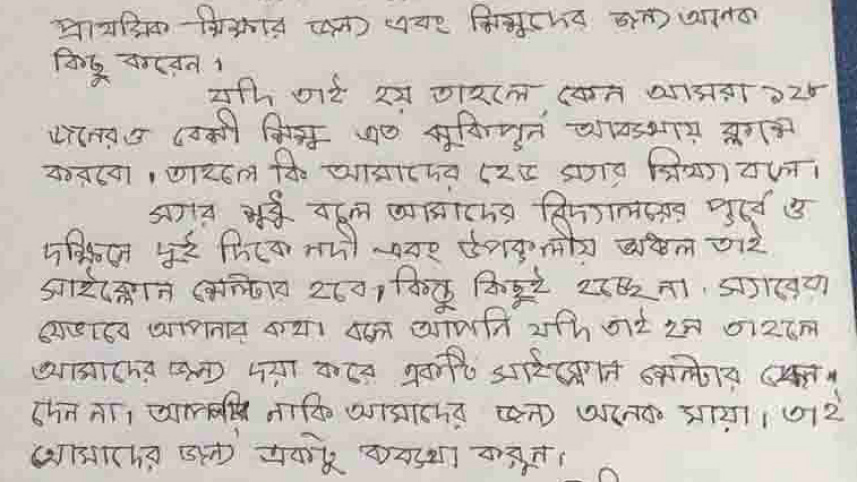 প্রাথমিক শিক্ষার জন্য এবং শিশুদের জন্য অনেক
কিছু করেন।
যদি তাই হয় তাহলে কেন আমরা ১২৮
জনেরও বেশী শিশু এত ঝুকিপুর্ন আবস্থায় ক্লাস
করবো। তাহলে কি আমাদের হেড স্যার মিথ্যা বলে।
স্যার শুধু বলে আমাদের বিদ্যালয়ের পুর্বে ও
দক্ষিনে দুই দিকে নদী এবং উপকূলীয় অঞ্চল তাই
সাইক্লোন সেল্টার হবে, কিন্তু কিছুই হচ্ছে না। স্যারেরা
যেভাবে আপনার কথা বলে আপনি যদি তাই হন তাহলে
আমাদের জন্য দয়া করে একটি সাইক্লোন সেল্টার কেন
দেন না। আপনার নাকি আমাদের জন্য অনেক মায়া। তাই
আমাদের জন্য একটু ব্যবস্থা করুন।